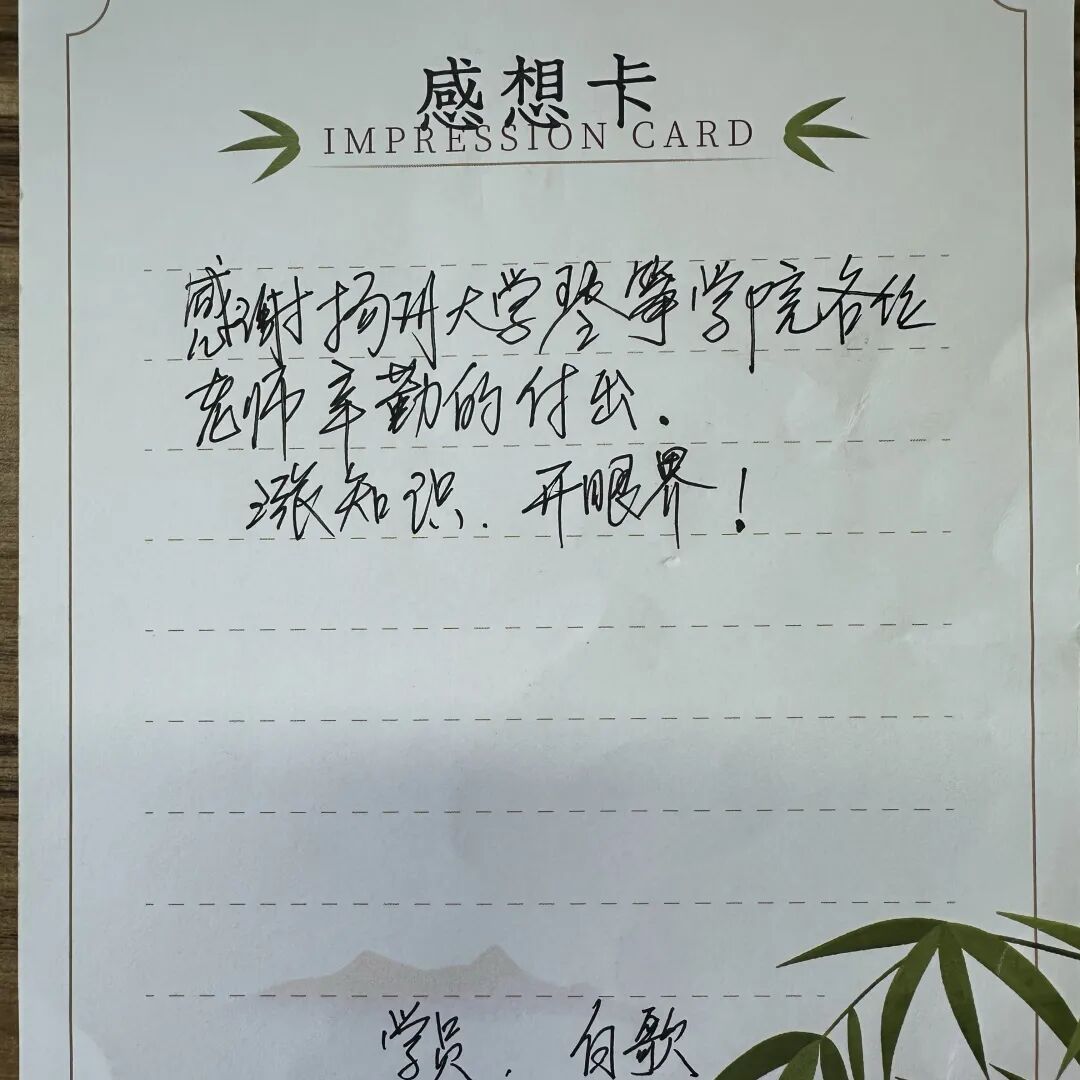 感想卡
IMPRESSION CARD
感谢扬州大学琴筝学院各位
老师辛勤的付出.
涨知识.开眼界！
学员.白歌